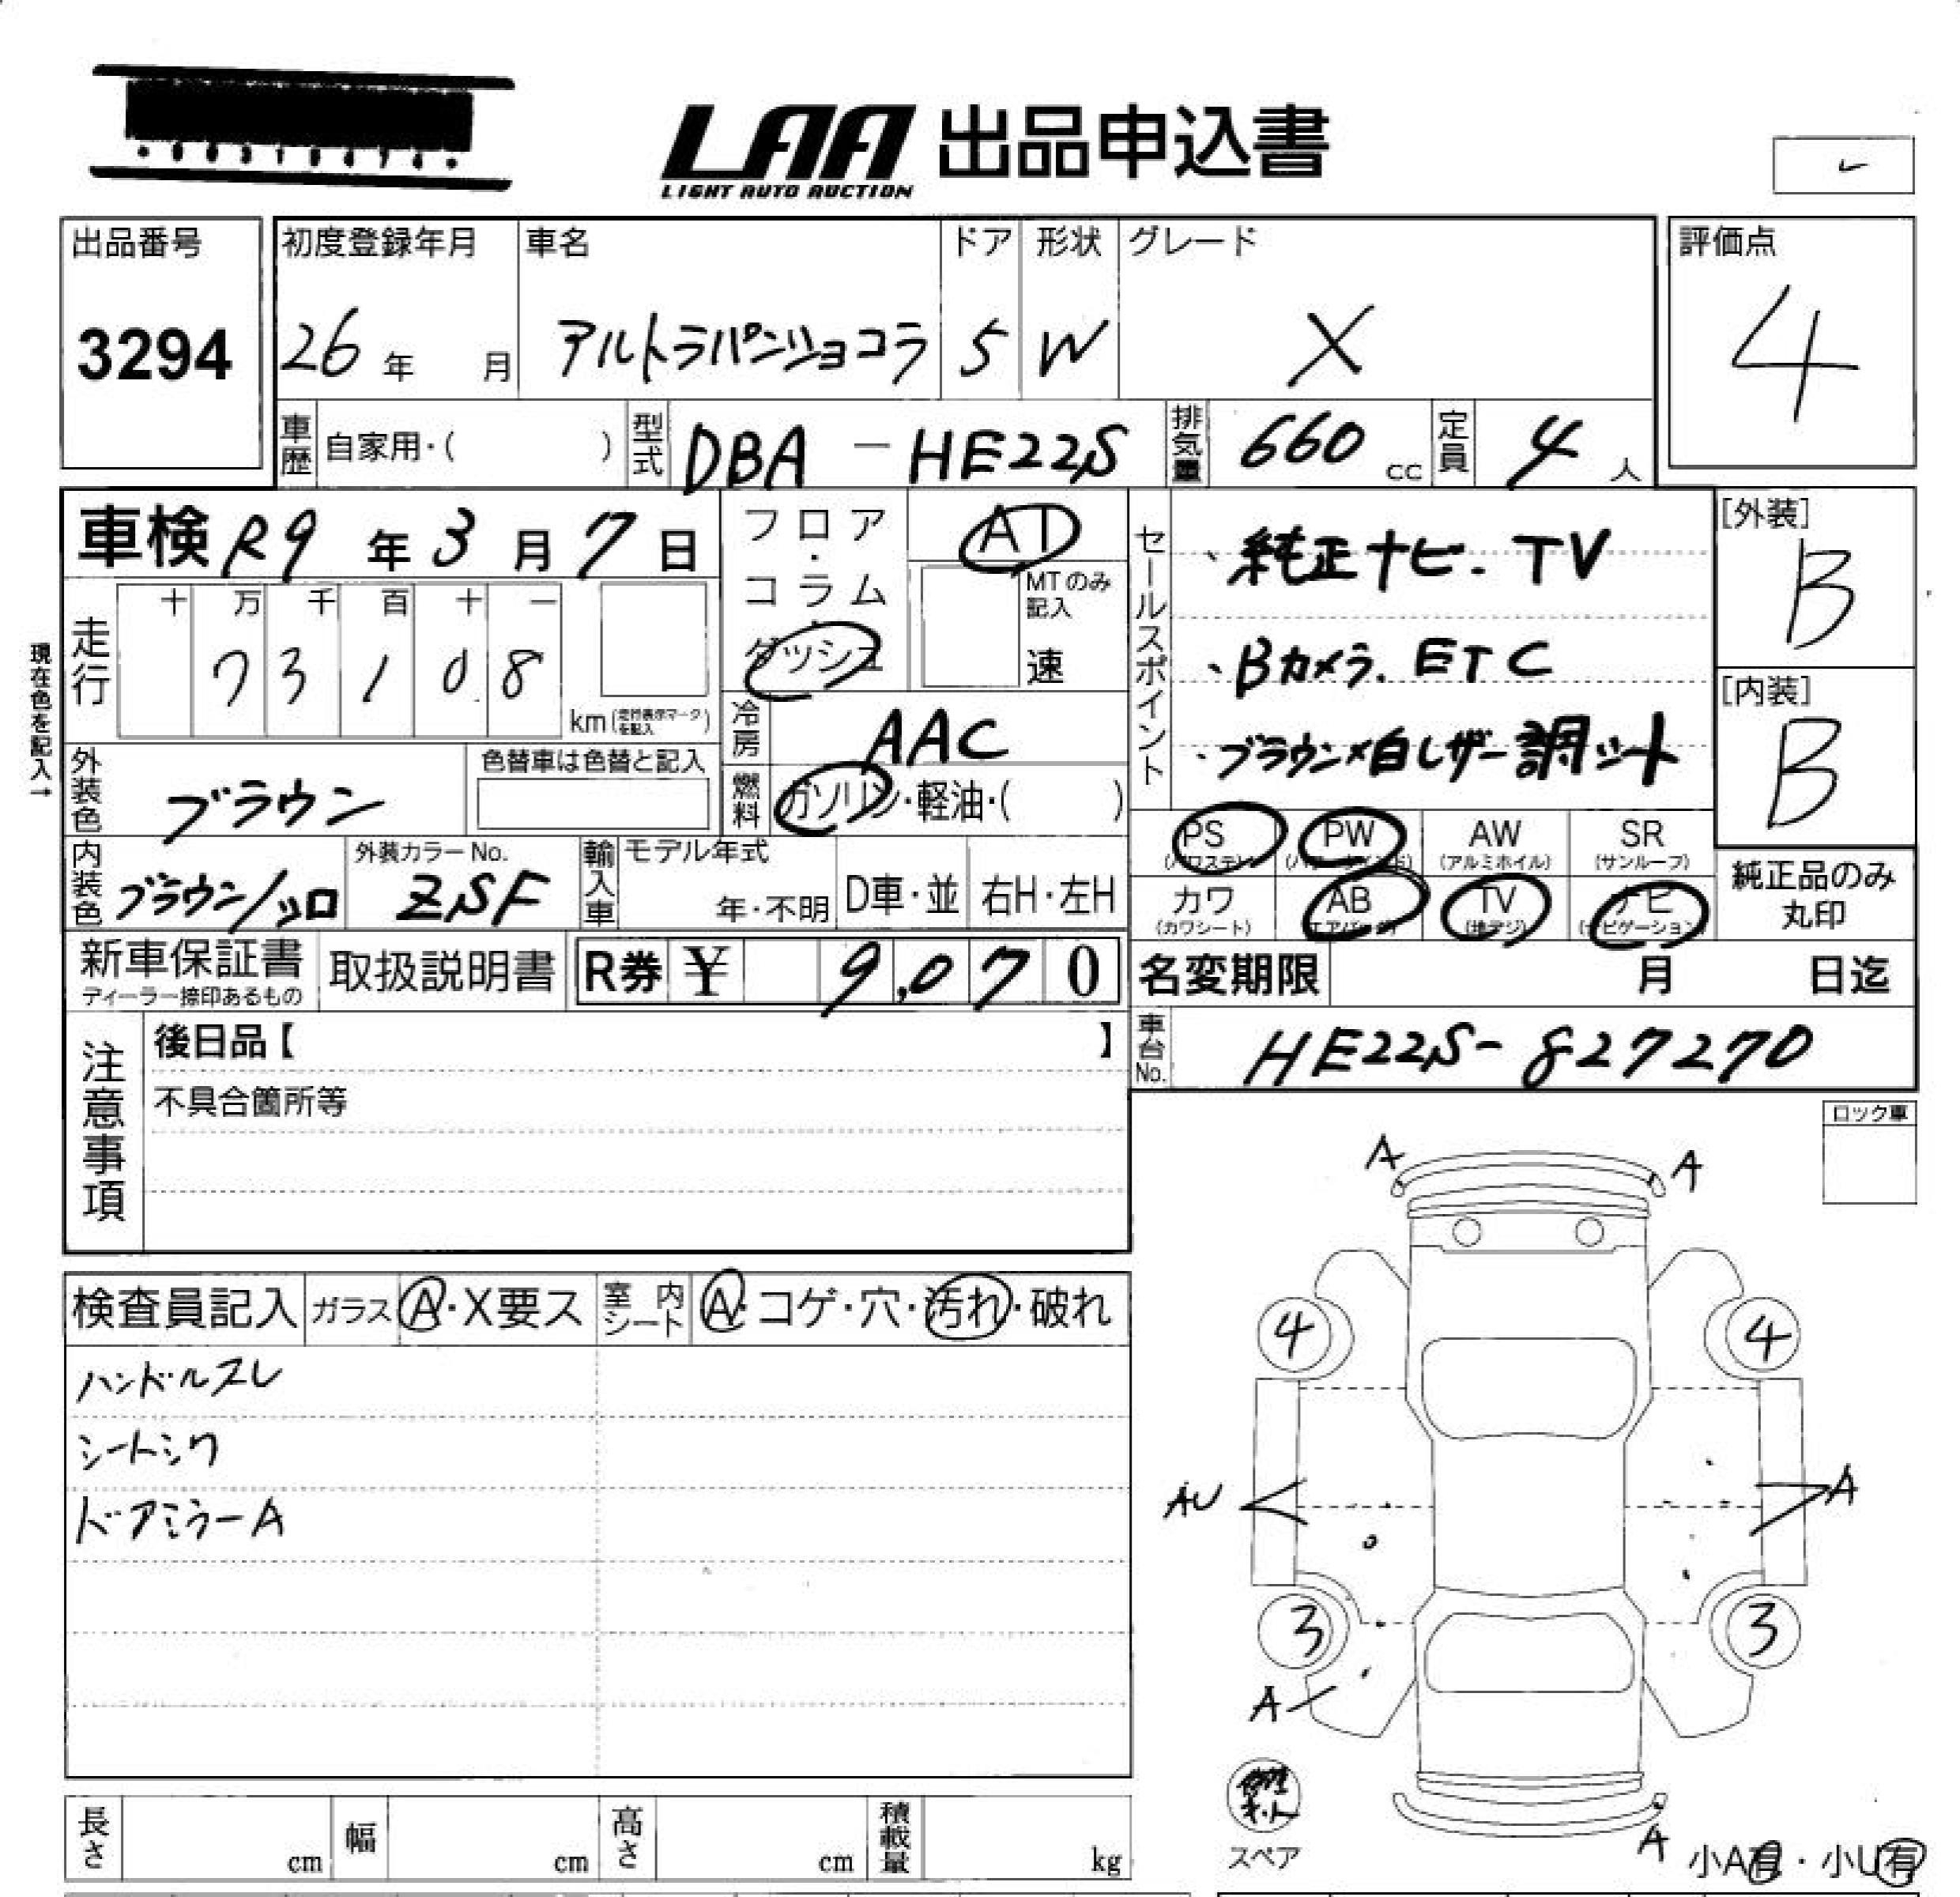 LAA 出品申込書
LIGHT AUTO AUCTION
出品番号 初度登録年月 車名 ドア 形状 グレード 評価点
3294 26年 月 アルトラパンショコラ 5 W X 4
車歴 自家用・( ) 型式 DBA-HE22S 排気量 660 cc 定員 4 人
車検 R9 年 3 月 7 日
フロア・コラム・ダッシュ AT
MTのみ記入 速
セールスポイント
・純正ナビ.TV
・Bカメラ.ETC
・ブラウン×白レザー調シート
[外装] B
[内装] B
現在色を記入→
走行 十 万 千 百 十 一
73108 km (走行表示マークを記入)
冷房 AAC
外装色 ブラウン 色替車は色替と記入
燃料 ガソリン・軽油・( )
内装色 ブラウン/シロ 外装カラーNo. ZSF 輸入車 モデル年式 年・不明 D車・並 右H・左H
PS (パワステ) PW (パワーウインド) AW (アルミホイル) SR (サンルーフ)
カワ (カワシート) AB (エアバッグ) TV (地デジ) ナビ (ナビゲーション)
純正品のみ丸印
新車保証書 ディーラー捺印あるもの 取扱説明書 R券 ¥ 9,070
名変期限 月 日迄
車台No. HE22S-827270
注意事項 後日品【 】
不具合箇所等
ロック車
検査員記入 ガラス A・X要ス 室内シート A・コゲ・穴・汚れ・破れ
ハンドルスレ
シートシワ
ドアミラーA
A A
4 4
AU A
3 3
A
スペア
A
小A有・小U有
長さ cm 幅 cm 高さ cm 積載量 kg